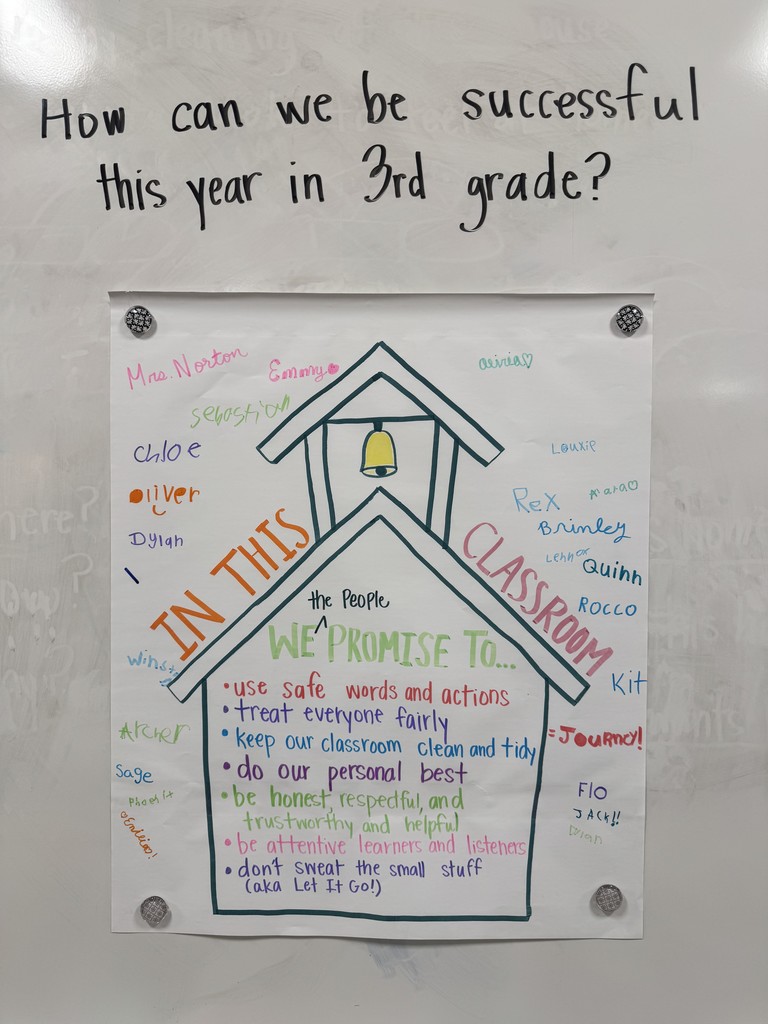 How can we be successful
this year in 3rd grade?
Mrs. Norton
Emmy
Sebastian
Chloe
Oliver
Dylan
Louxie
Rex
Amara
Brinley
Lennox
Quinn
Rocco
Kit
IN THIS
CLASSROOM
the People
WE ^ PROMISE TO...
• use safe words and actions
• treat everyone fairly
• keep our classroom clean and tidy
• do our personal best
• be honest, respectful, and
trustworthy and helpful
• be attentive learners and listeners
• don't sweat the small stuff
(aka Let It Go!)
Archer
Sage
JOURNEY!
Flo
JACK!!